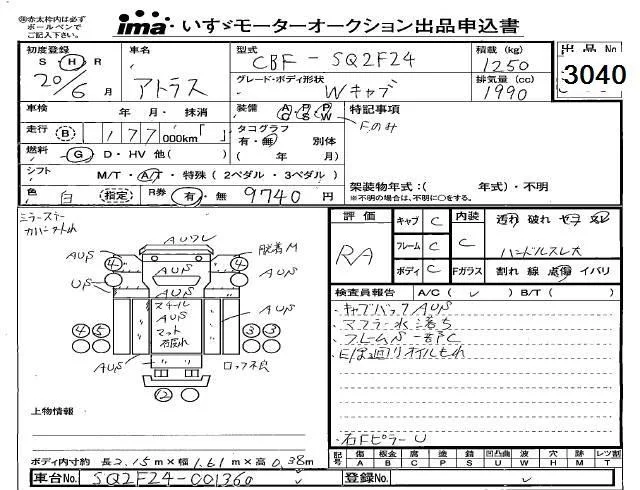 ㊟赤太枠内は必ず
ボールペンで
ご記入下さい。
ima いすゞモーターオークション出品申込書
初度登録 車名 型式 積載 (kg) 出品 No
S・H・R アトラス CBF - SQ2F24 1250
20/6 月 グレード・ボディ形状 Wキャブ 排気量 (cc) 1990
3040
車検 年 月・抹消 装備 AC PS PW 特記事項
Fのみ
走行 B 177 000km「 」 タコグラフ 有・無 別体
燃料 G・D・HV 他( ) ( 年 月)
シフト M/T・A/T・特殊(2ペダル・3ペダル) 架装物年式:( 年式)・不明
※不明の場合は、不明に○をする。
色 白 指定 R券 有・無 9740 円
評価 キャブ C 内装 汚れ 破れ ヤコ スレ
RA フレーム C C ハンドルスレ大
ボディ C Fガラス 割れ 線 点傷 イバリ
ミラーステー
カバー
AUS
脱着M
AUS
AUS
US
4
4
スチール
AUS
マット
AUS
AUS
4 5
3 3
AUS
ロック不良
12
検査員報告 A/C( ✓ ) B/T( )
・キャブバックAUS
・マフラー水落ち
・フレームS一部C
・E/g廻りオイルもれ
右FピラーU
上物情報
ボディ内寸約 長2.15m×幅1.61m×高0.38m
記号 傷 A 板金 B 腐 C 塗 P 錆 S 凹凸曲 U 波 W 穴 H 跡 M レツ割 T
車台No SQ2F24-001360 登録No.